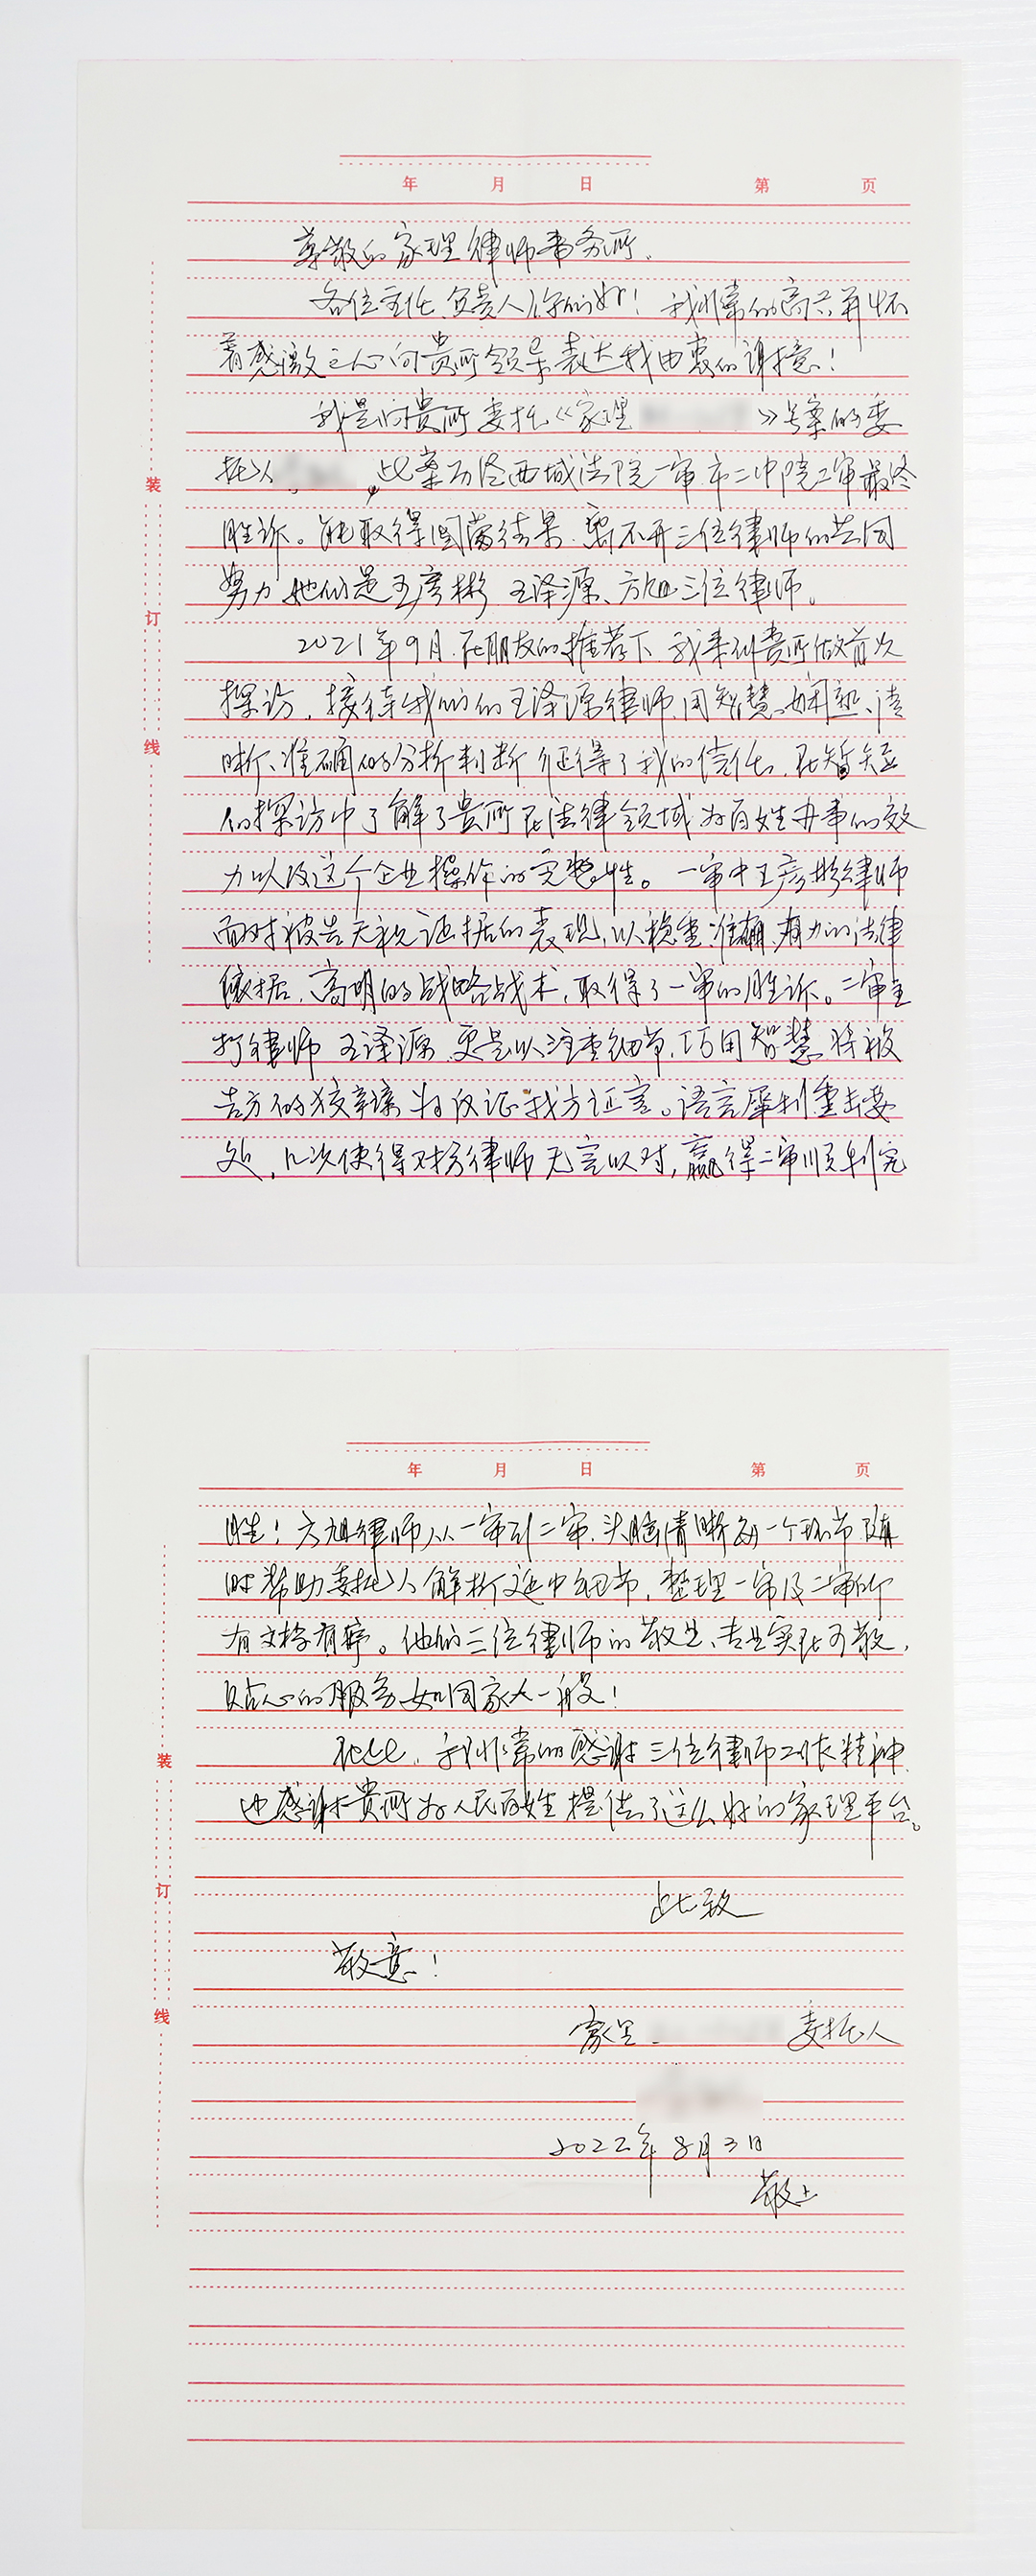 年 月 日 第 页
尊敬的家理律师事务所.
各位主任、负责人你们好！我非常的高兴并怀
着感激之心向贵所领导表达我由衷的谢意！
我是向贵所委托《家理 》号案的委
托人 ,此案历经西城法院一审.市二中院二审最终
胜诉。能取得圆满结果.离不开三位律师的共同
努力 她们是王彦彬 王泽源、方旭三位律师。
2021年9月.在朋友的推荐下.我来到贵所做首次
探访,接待我们的王泽源律师.用智慧、娴熟、清
晰、准确的分析判断 征得了我的信任.在暂短
的探访中了解了贵所在法律领域为百姓办事的效
力以及这个企业操作的完整性。一审中王彦彬律师
面对被告无视证据的表现,以稳重.准确.有力的法律
依据,高明的战略战术,取得了一审的胜诉。二审主
打律师 王泽源 更是以注重细节,巧用智慧.将被
告方的狡辩 为 证我方证言。语言犀利重击要
处,几次使得对方律师无言以对,赢得二审顺利完
装
订
线
年 月 日 第 页
胜！方旭律师从一审到二审.头脑清晰每一个环节.随
时帮助委托人解析 中细节,整理一审及二审所
有文档有序。他们三位律师的敬业、专业实在可敬,
贴心的服务如同家人一般！
在此,我非常的感谢三位律师工作精神.
也感谢贵所为人民百姓提供了这么好的家理平台。
此致
敬意！
家里 委托人
2022年8月3日
敬上
装
订
线